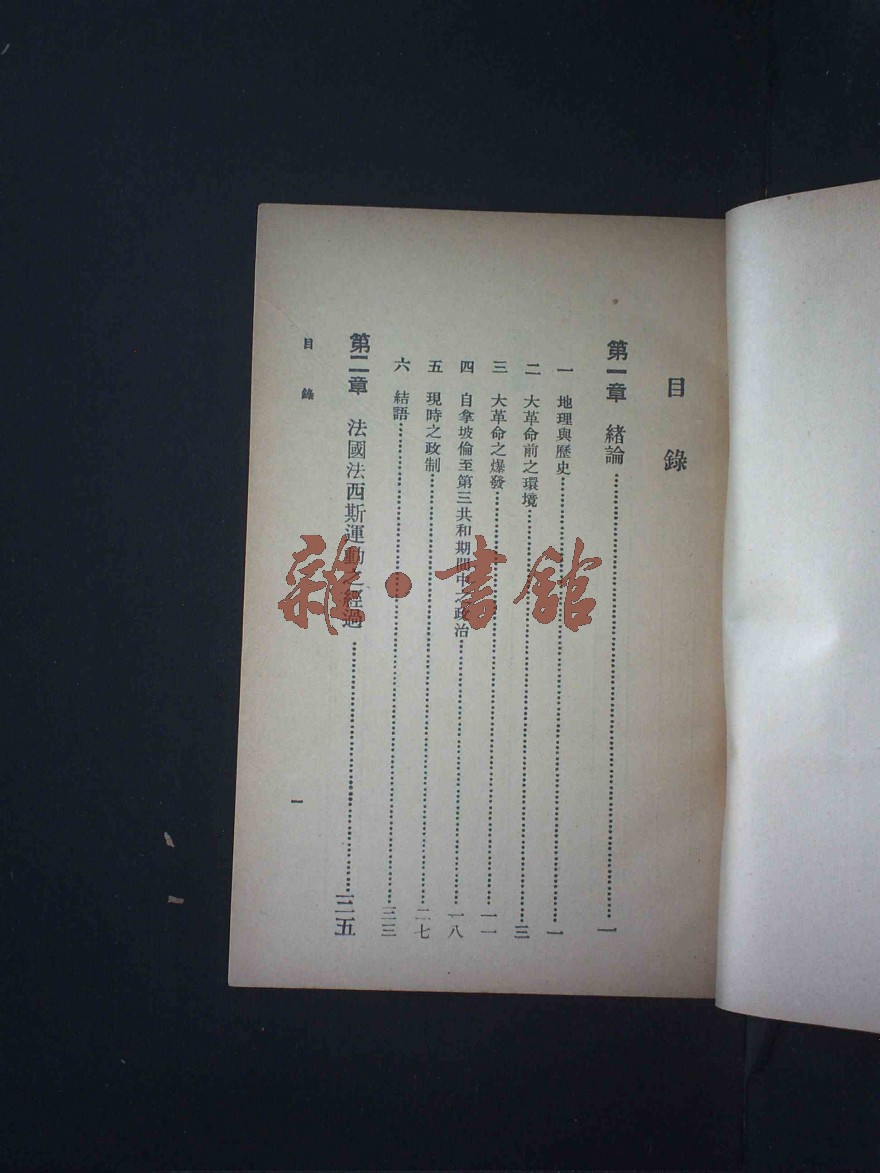 目錄
第一章 緒論……一
一 地理與歷史……一
二 大革命前之環境……三
三 大革命之爆發……一一
四 自拿坡倫至第三共和期間中之政治……一八
五 現時之政制……二七
六 結語……三三
第二章 法國法西斯運動之經過……三五
目錄
一
雜·書館